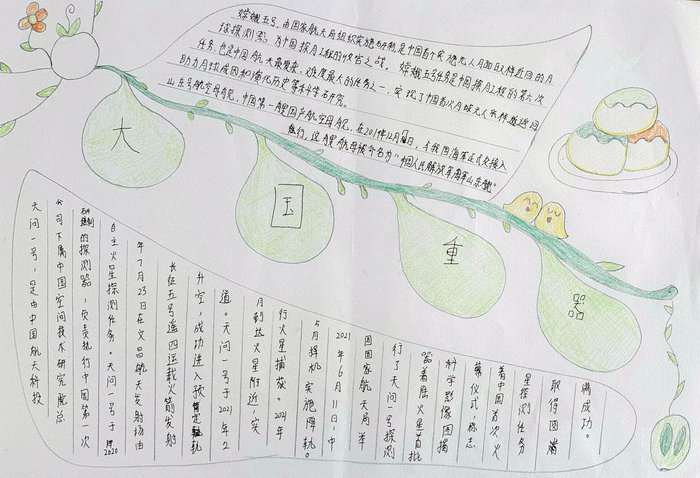 嫦娥五号,由国家航天局组织实施研制,是中国首个实施无人月面取样返回的月
球探测器,为中国探月工程的收官之战。嫦娥五号任务是中国探月工程的第六次
任务,也是中国航天最复杂、难度最大的任务之一,实现了中国首次月球无人采样返回
助力月球成因和演化历史等科学研究。
山东号航空母舰,中国第一艘国产航空母舰,在2019年12月 日,于我国海军正式交接入
进行,这艘航母被命名为“中国人民解放军海军山东舰”
大
国
重
器
天问一号,是由中国航天科技
公司下属中国空间技术研究院总
研制的探测器,负责执行中国第一次
自主火星探测任务。天问一号于2020
年7月23日在文昌航天发射场由
长征五号遥四运载火箭发射
升空,成功进入预定轨
道。天问一号于2021年2
月到达火星附近,实
行火星捕获。2021年
5月择机实施降轨。
2021年6月11日中
国国家航天局举
行了天问一号探测
器着陆火星首批
科学影像图揭
幕仪式,标志
着中国首次火
星探测任务
取得圆满
满成功。